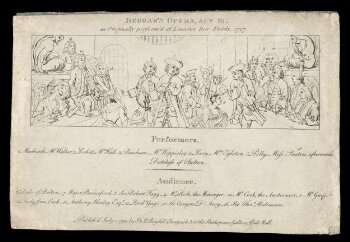 BEGGAR'S OPERA, ACT III,
as Originally performed at Lincolns Inn Fields, 1727.
Performers.
1 Macheath, Mr Walker, 2 Lockitt, Mr Hall, 3 Peachum, Mr Hippesley, 4 Lucy, Mrs Egleton, 5 Polly, Miss Fenton, afterwards
Dutchess of Bolton.
Audience.
6 Duke of Bolton, 7 Major Pounceford, 8 Sir Robert Fagg, 9 Mr Rich, the Manager, 10 Mr Cock, the Auctioneer, 11 Mr Gay,
12 Lady Jane Cook, 13 Anthony Henley Esqr 14 Lord Gage, 15 Sir Conyers D'Arcy, 16 Sir Thos Robinson.
Publish'd July 1, 1790, by J. & J. Boydell, Cheapside, & at the Shakspeare Gallery, Pall Mall.